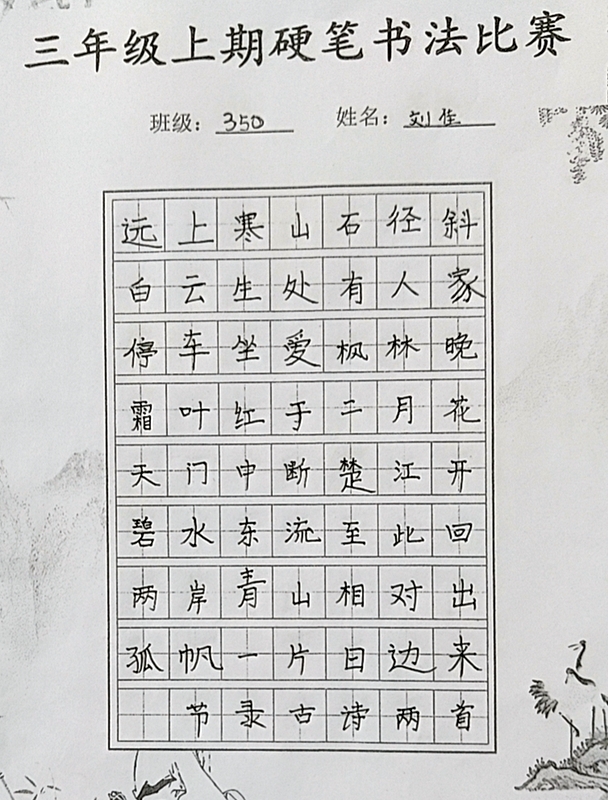 三年级上期硬笔书法比赛
班级：350 姓名：刘佳
远上寒山石径斜
白云生处有人家
停车坐爱枫林晚
霜叶红于二月花
天门中断楚江开
碧水东流至此回
两岸青山相对出
孤帆一片日边来
节录古诗两首